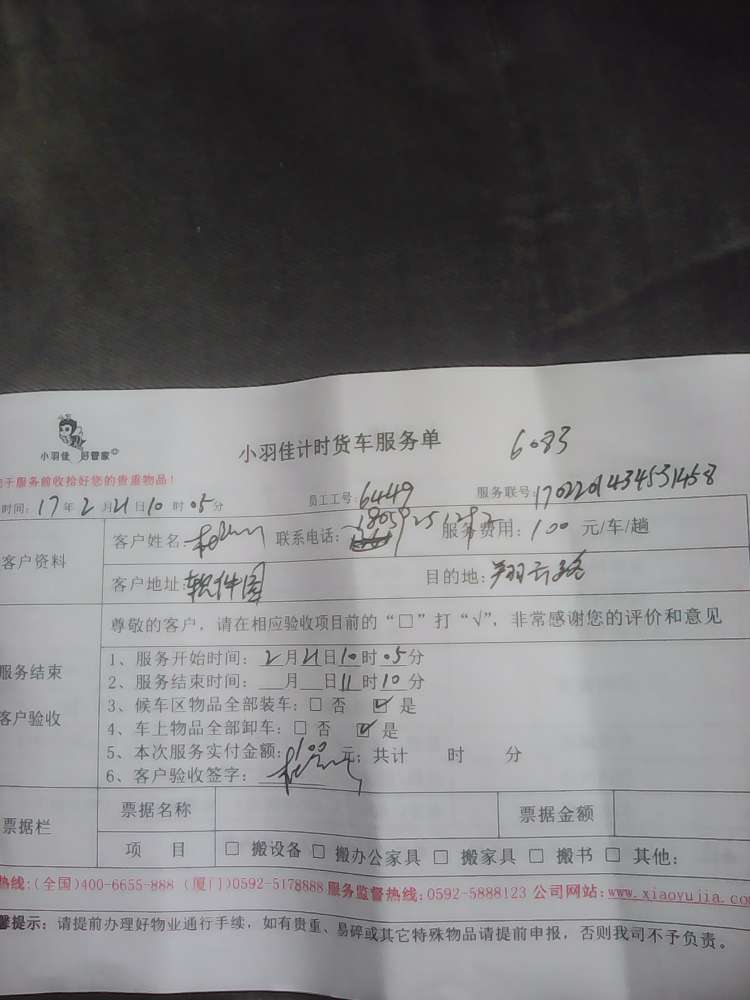 小羽佳 好管家
小羽佳计时货车服务单
6083
于服务前收拾好您的贵重物品！
时间：17年2月21日10时05分 员工工号：6449 服务联号：1702201434531458
客户资料
客户姓名： 联系电话：18059251292 服务费用：100 元/车/趟
客户地址：软件园 目的地：翔云路
尊敬的客户，请在相应验收项目前的“□”打“√”，非常感谢您的评价和意见
服务结束
客户验收
1、服务开始时间：2月21日10时05分
2、服务结束时间：__月__日11时10分
3、候车区物品全部装车：□ 否 ☑ 是
4、车上物品全部卸车：□ 否 ☑ 是
5、本次服务实付金额：100 元；共计 时 分
6、客户验收签字：
票据栏
票据名称 票据金额
项 目 □ 搬设备 □ 搬办公家具 □ 搬家具 □ 搬书 □ 其他：
热线：(全国)400-6655-888 (厦门)0592-5178888 服务监督热线：0592-5888123 公司网站：www.xiaoyujia.co
馨提示：请提前办理好物业通行手续，如有贵重、易碎或其它特殊物品请提前申报，否则我司不予负责。